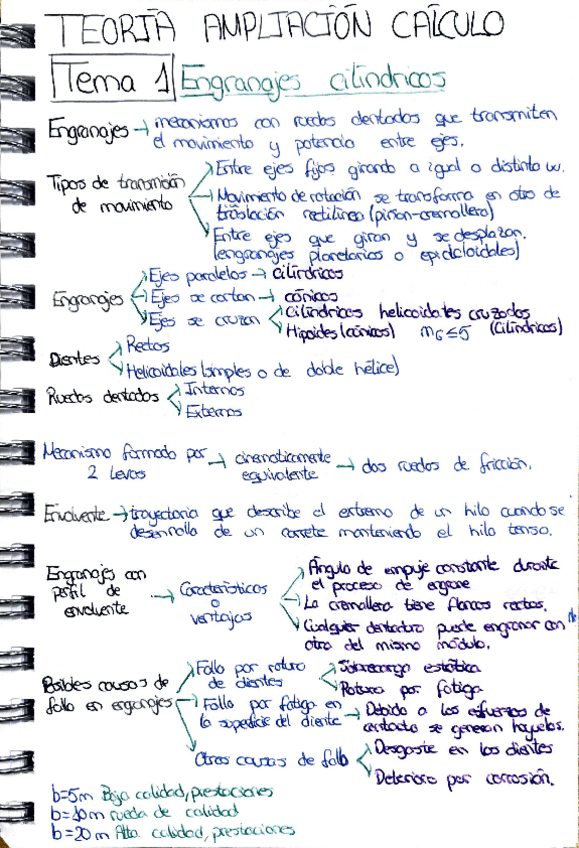 TEORÍA AMPLIACIÓN CÁLCULO
Tema 1 Engranajes cilíndricos
Engranajes → mecanismos con ruedas dentadas que transmiten
el movimiento y potencia entre ejes.
Tipos de transmisión
de movimiento
Entre ejes fijos girando a igual o distinto w.
Movimiento de rotación se transforma en otro de
traslación rectilínea (piñon-cremallera)
Entre ejes que giran y se desplazan.
(engranajes planetarios o epicicloidales)
Engranajes
Ejes paralelos → cilíndricos
Ejes se cortan → cónicos
Ejes se cruzan
Cilíndricos helicoidales cruzados
Hipoides (cónicos) mG≤5 (Cilíndricos)
Dientes
Rectos
Helicoidales (simples o de doble hélice)
Ruedas dentadas
Internos
Externos
Mecanismo formado por
2 levas
→ cinematicamente
equivalente
→ dos ruedas de fricción.
Envolvente → trayectoria que describe el extremo de un hilo cuando se
desenrolla de un carrete manteniendo el hilo tenso.
Engranajes con
perfil de
envolvente
→ Características
o
ventajas
Ángulo de empuje constante durante
el proceso de engrane
La cremallera tiene flancos rectos.
Cualquier dentadura puede engranar con
otra del mismo módulo.
Posibles causas de
fallo en engranajes
Fallo por rotura
de dientes
Sobrecarga estática
Rotura por fatiga
Fallo por fatiga en
la superficie del diente
→ Debido a los esfuerzos de
contacto se generan hoyuelos.
Otras causas de fallo
Desgaste en los dientes
Deterioro por corrosión.
b=5m Baja calidad, prestaciones
b=10m rueda de calidad
b=20m Alta calidad, prestaciones